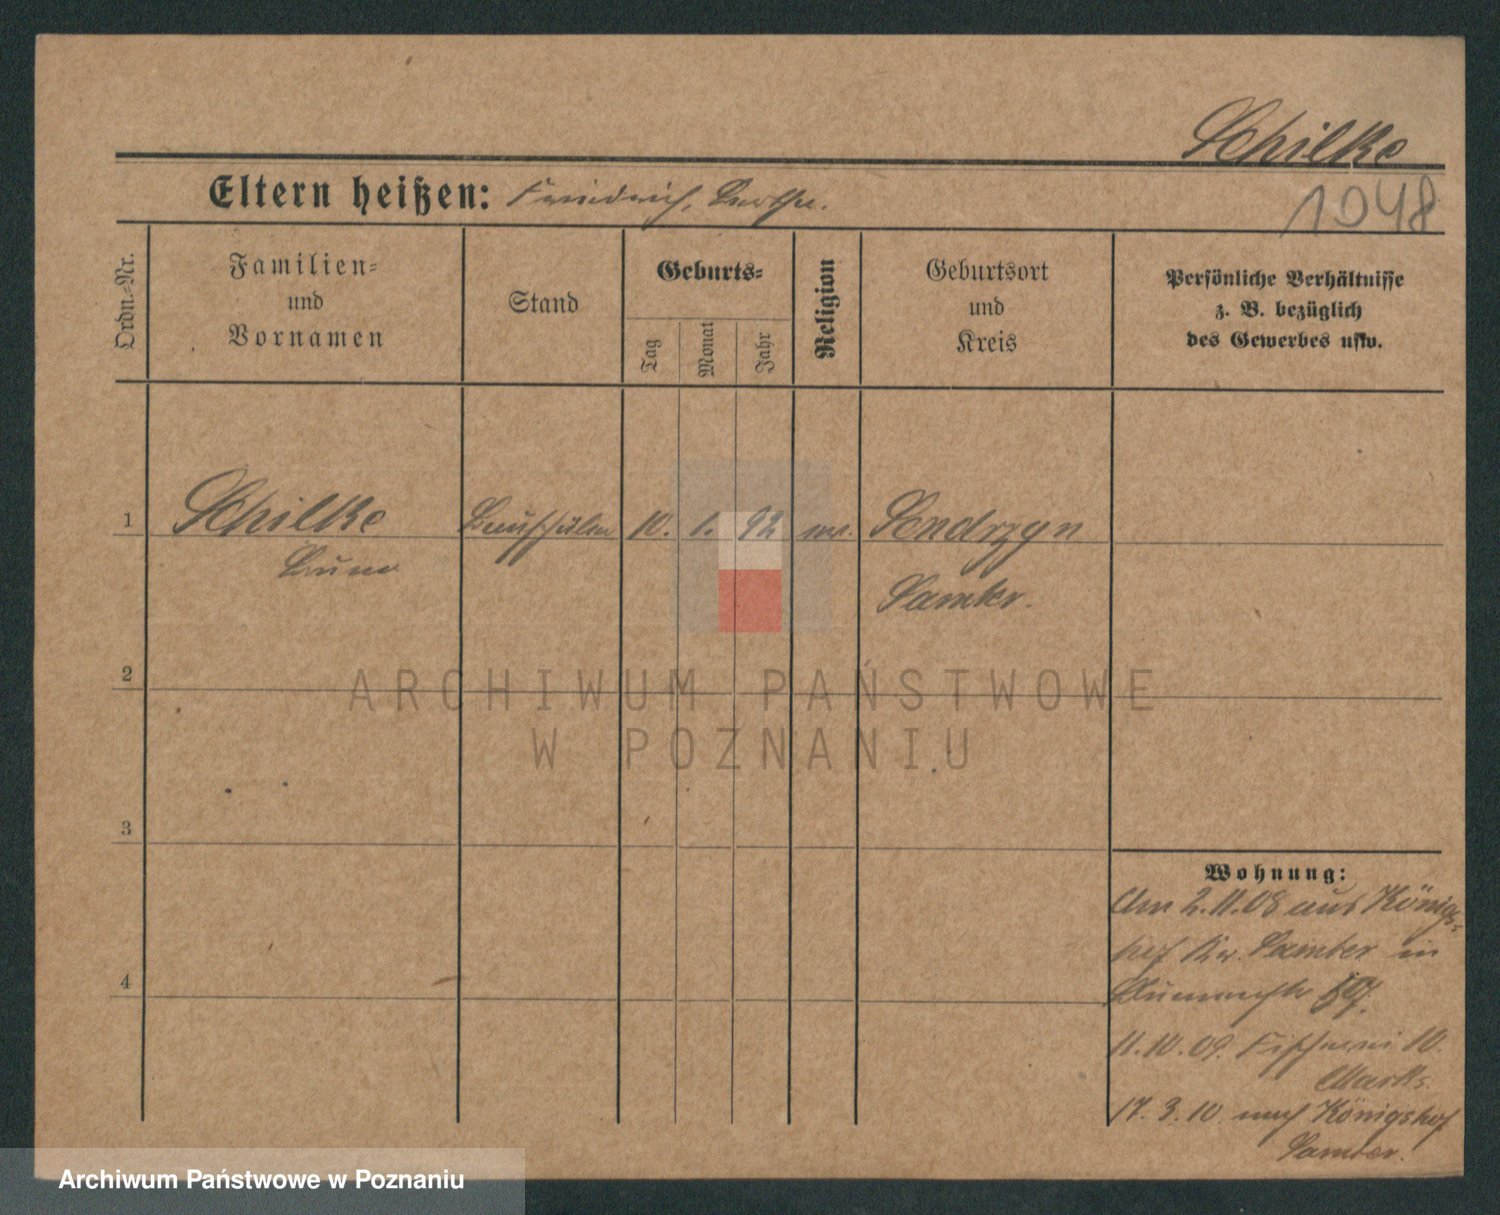 Schilke
1048
Eltern heißen: Friedrich, Berthe.
Ordn.=Nr.
Familien=
und
Vornamen
Stand
Geburts=
Tag
Monat
Jahr
Religion
Geburtsort
und
Kreis
Persönliche Verhältnisse
z. B. bezüglich
des Gewerbes usw.
1 Schilke 10. 1. 92 Sendrzyn
Bruno Samter.
2
ARCHIWUM PAŃSTWOWE
W POZNANIU
3
Wohnung:
Am 2.11.08 aus Königs=
hof Kr. Samter in
4
11.10.09. Fischerei 10.
17.3.10 nach Königshof
Samter.
Archiwum Państwowe w Poznaniu